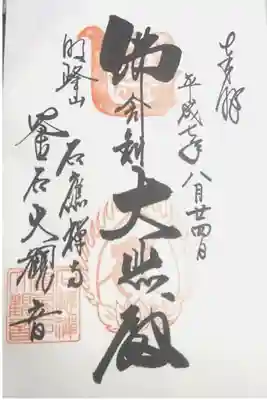 奉拝
平成廿年八月廿四日
佛舎利大悲殿
明峰山
石應禅寺
釜石大観音